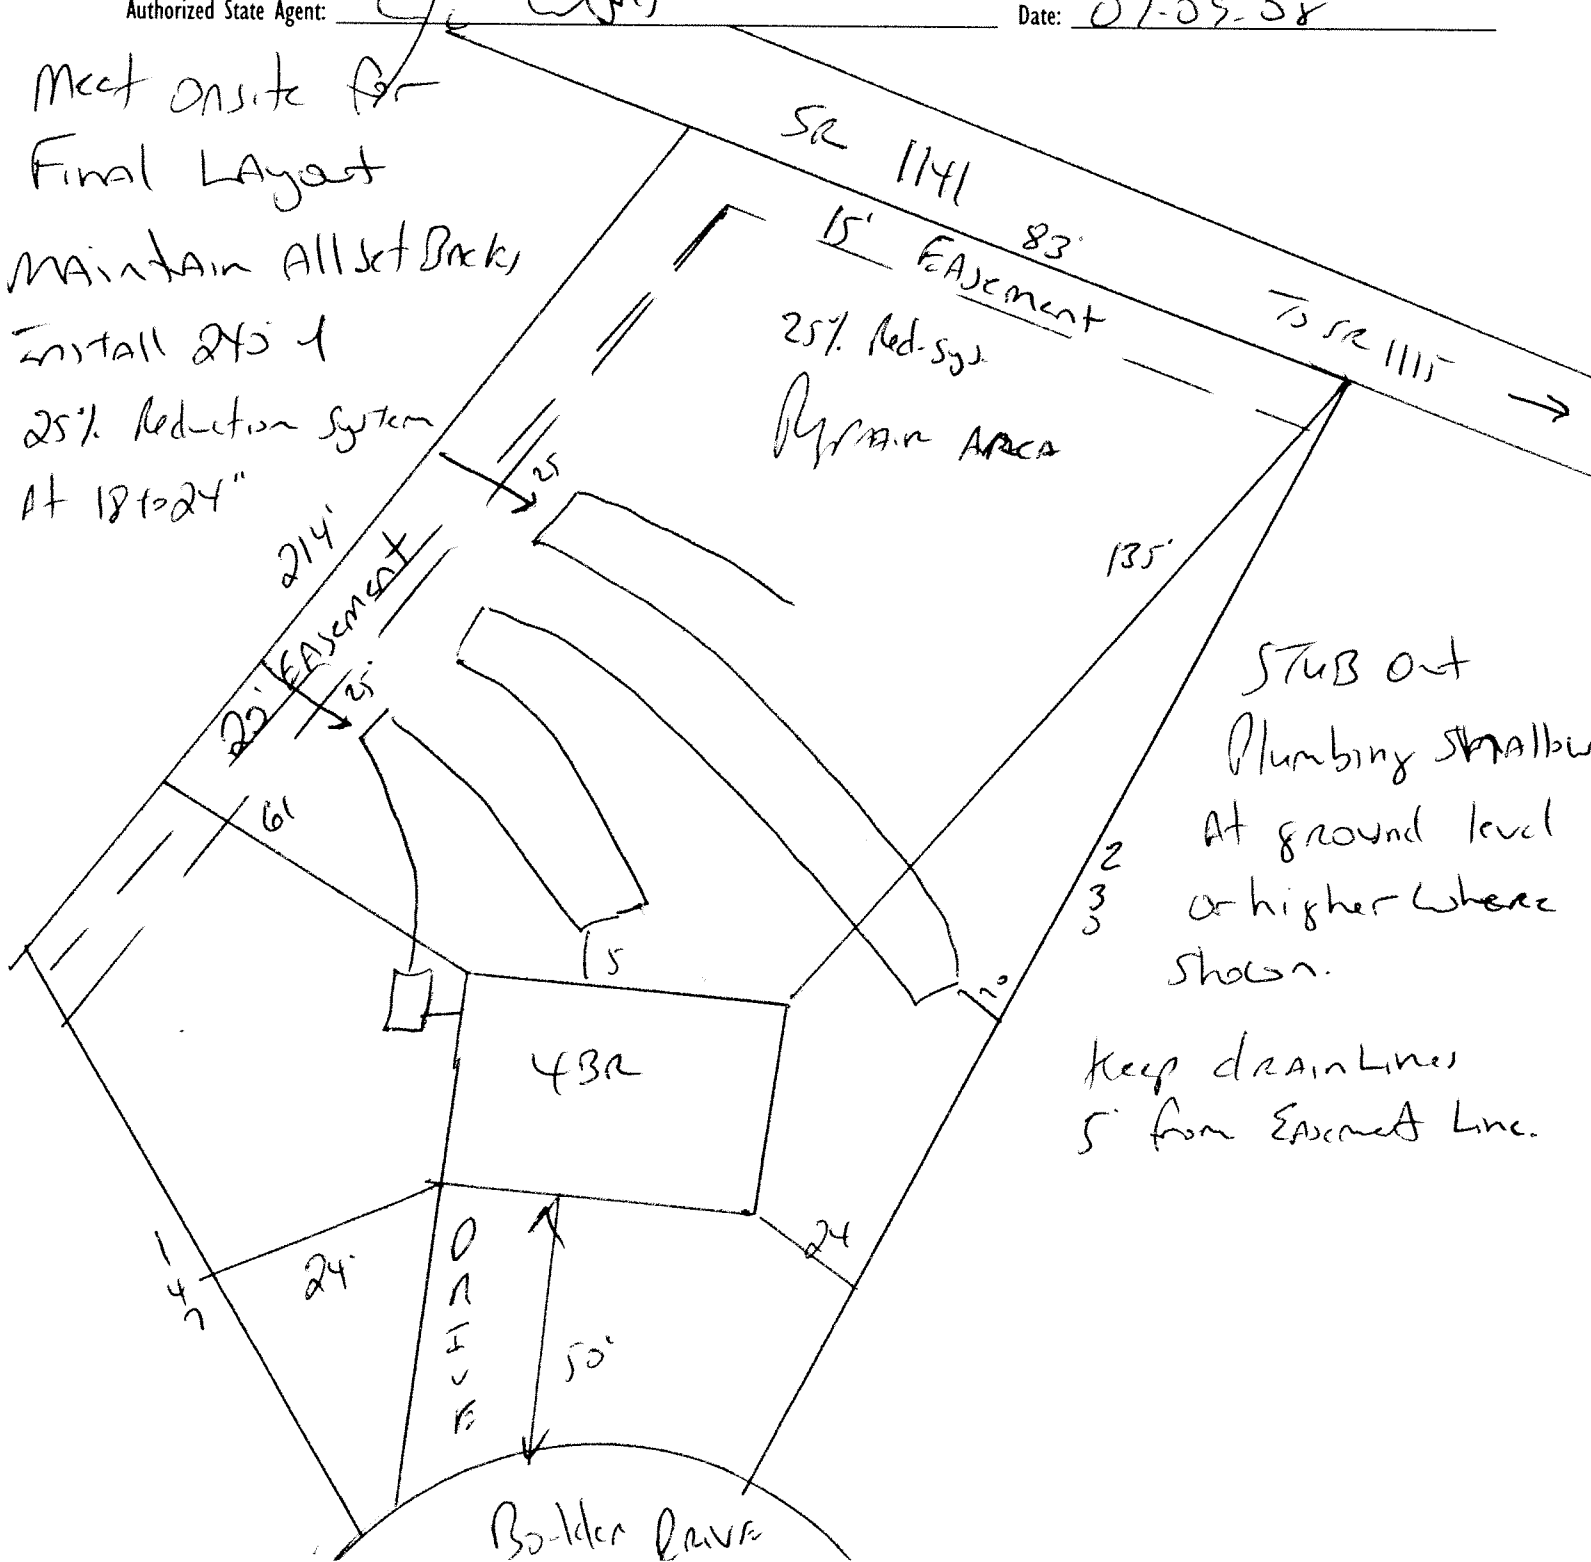 Authorized State Agent:
Date: 07-09-08
Meet onsite for
Final LAyout
MAintAin All SetBacks
Install 240'
25% Reduction System
At 18 to 24"
SR 1141
83'
15' EAsement
To SR 1115
25% Red. Sys.
Repair AreA
25
214'
20' EAsement
25'
135'
61
STUB Out
Plumbing Shallow
At ground level
or higher where
shown.
233
5
10
4BR
Keep drAinLines
5' from Easement Line.
147
24'
24
DRIVE
50'
Boulder DRIVE